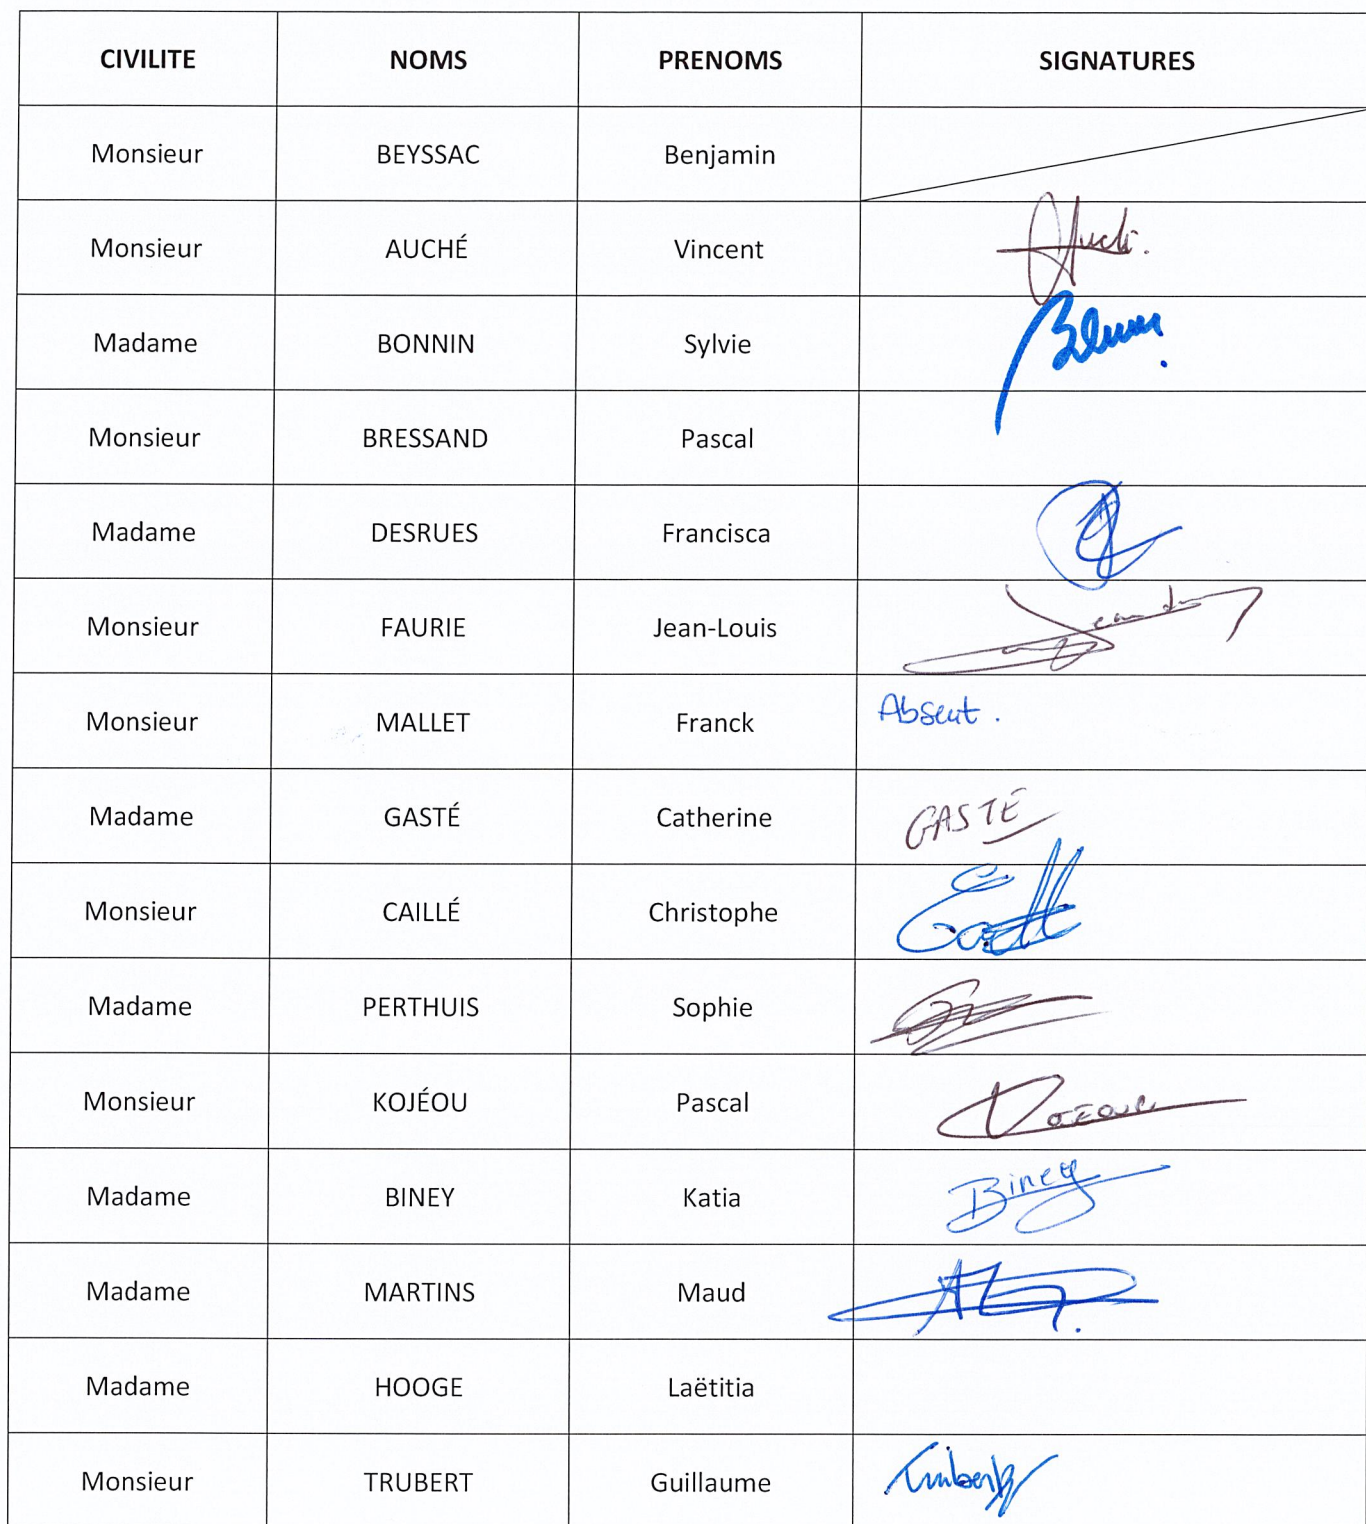 CIVILITE NOMS PRENOMS SIGNATURES
Monsieur BEYSSAC Benjamin
Monsieur AUCHÉ Vincent Auché.
Madame BONNIN Sylvie
Monsieur BRESSAND Pascal
Madame DESRUES Francisca
Monsieur FAURIE Jean-Louis
Monsieur MALLET Franck Absent.
Madame GASTÉ Catherine GASTÉ
Monsieur CAILLÉ Christophe
Madame PERTHUIS Sophie
Monsieur KOJÉOU Pascal
Madame BINEY Katia Biney
Madame MARTINS Maud
Madame HOOGE Laëtitia
Monsieur TRUBERT Guillaume